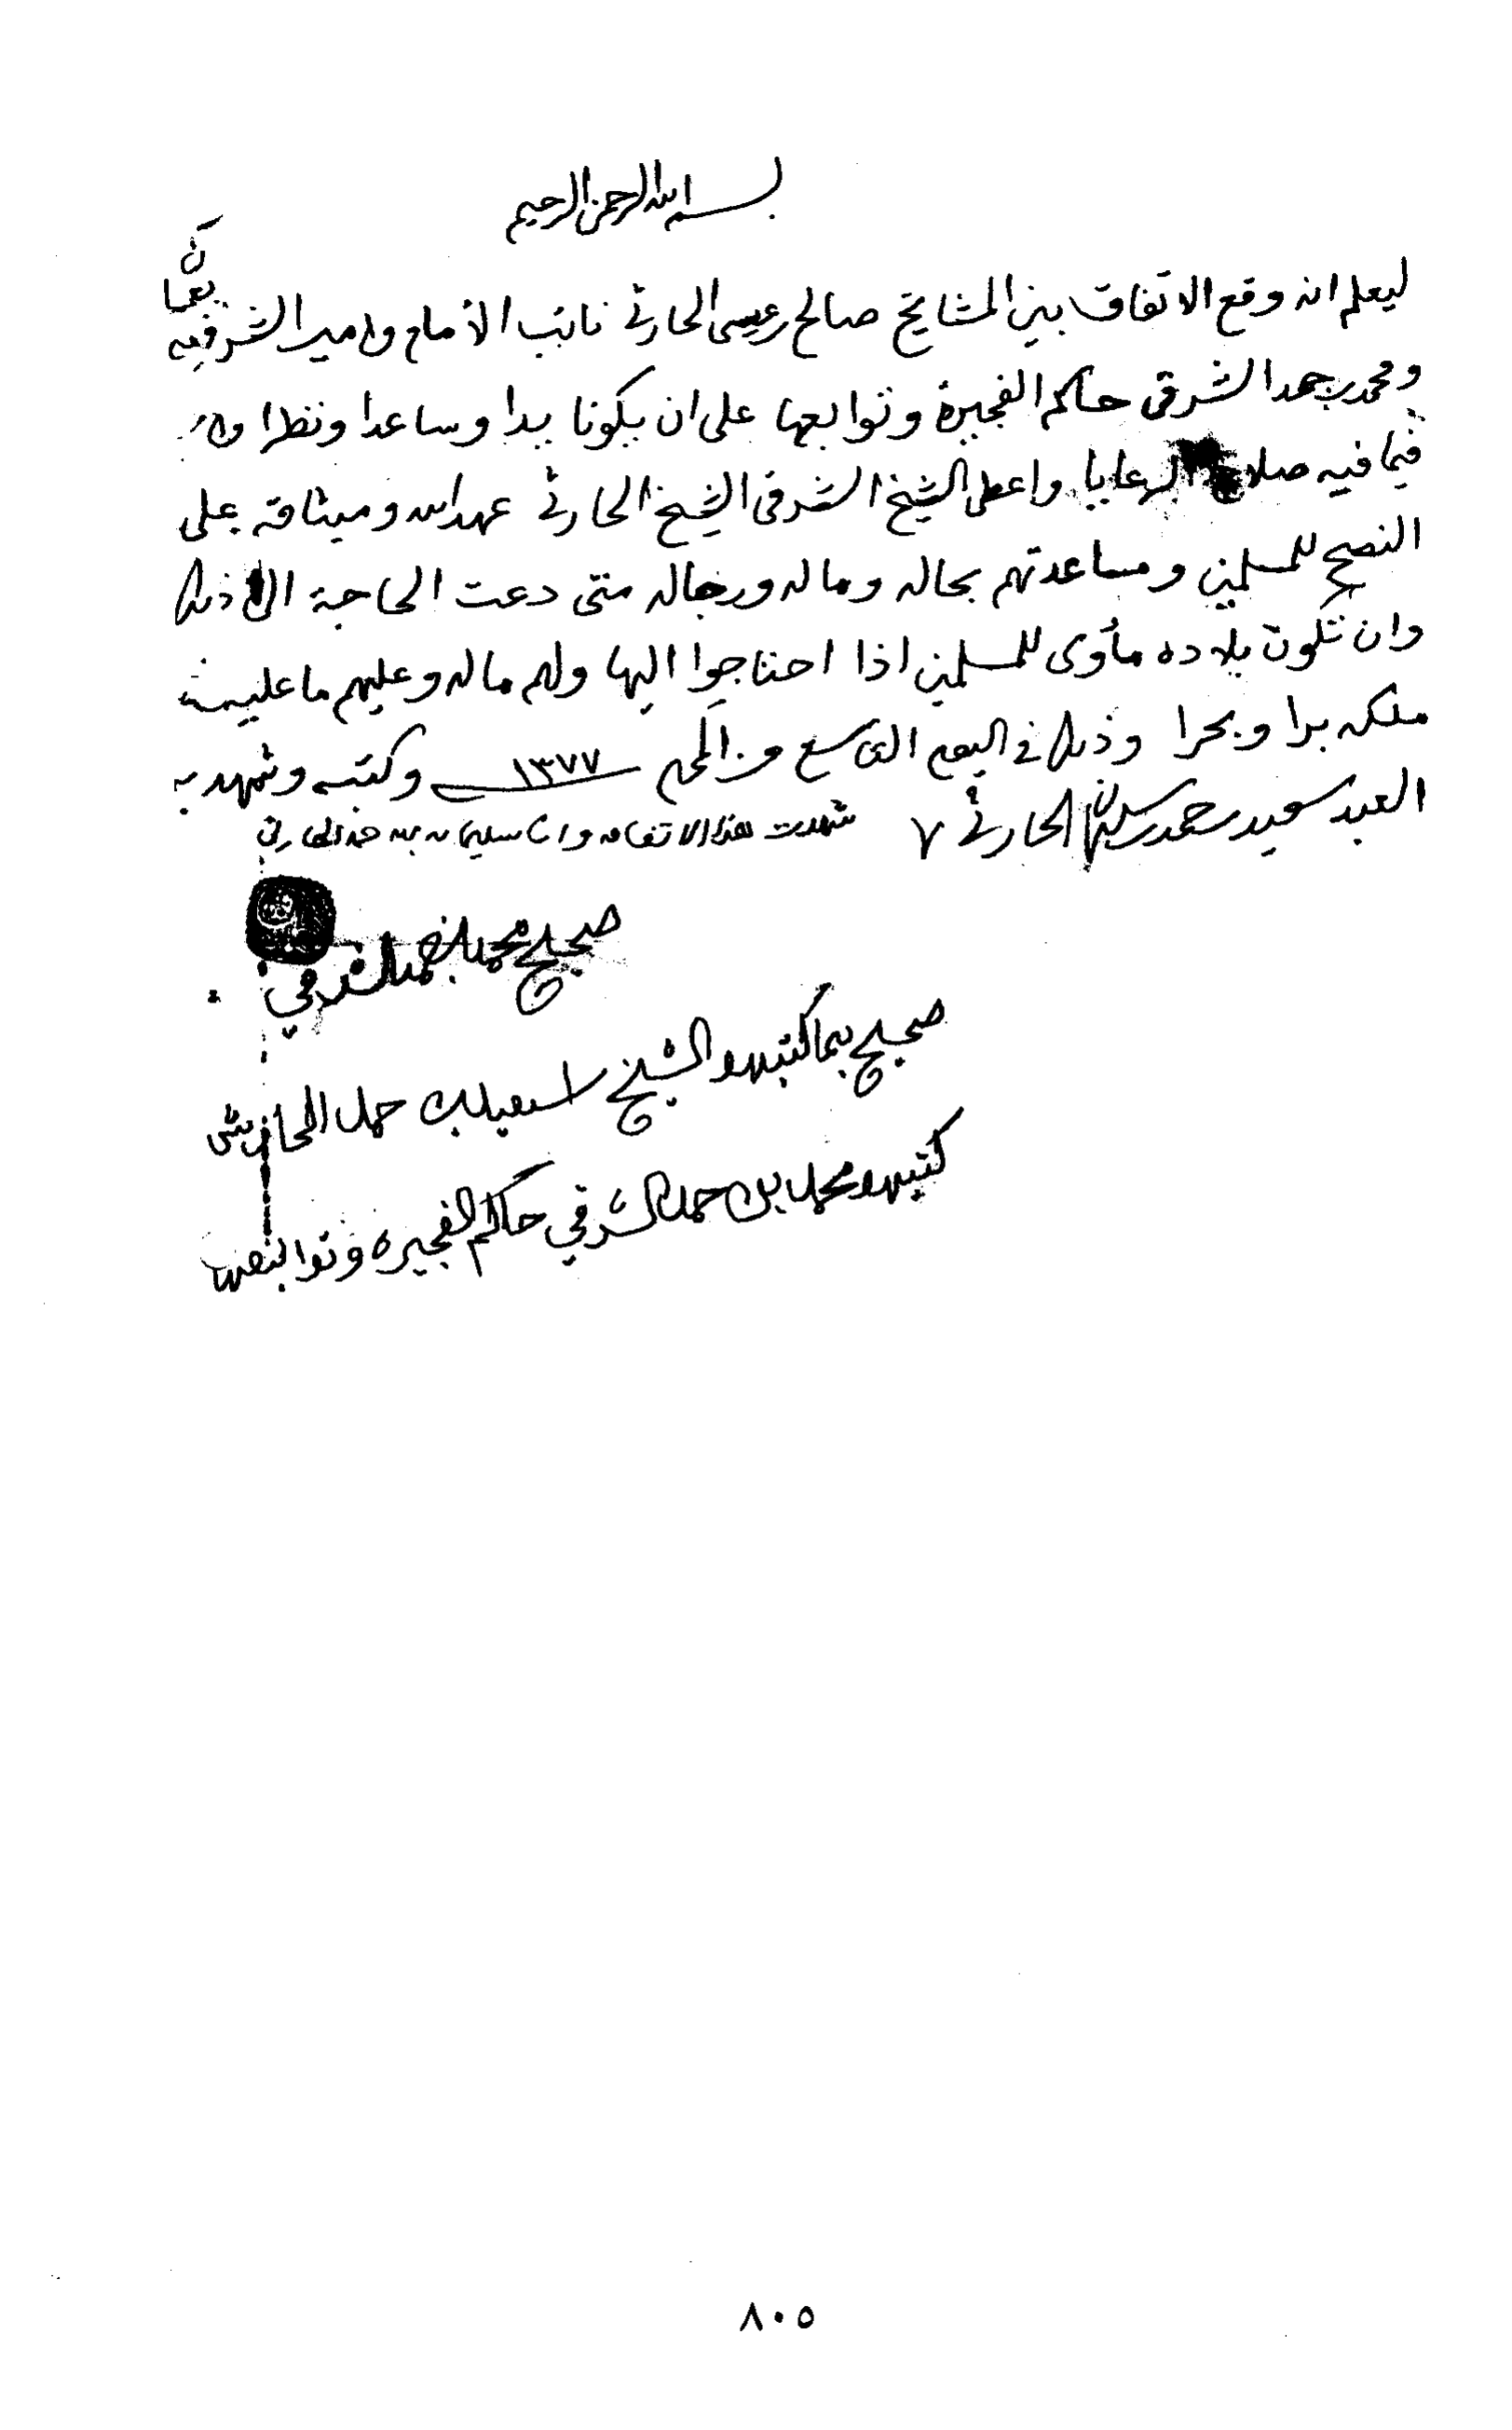 بسم الله الرحمن الرحيم
ليعلم انه وقع الاتفاق بين المشايخ صالح بن عيسى الحارثي نائب الامام وامير الشرقيه بعمان
ومحمد بن حمد الشرقي حاكم الفجيرة وتوابعها على ان يكونا يدا وساعدا ونظرا
فيما فيه صلاح الرعايا واعطى الشيخ الشرقي الشيخ الحارثي عهد الله وميثاقه على
النصح للمسلمين ومساعدتهم بحاله وماله ورجاله متى دعت الحاجة الى ذلك
وان تكون بلاده مأوى للمسلمين اذا احتاجوا اليها ولهم ماله وعليهم ما عليه
برا وبحرا وذلك في اليوم التاسع من المحرم ١٣٧٧ وكتبه وشهد به
العبد سعيد بن حمد بن سليمان الحارثي ٧ شهدت هذا الاتفاق وانا سليمان بن حمد الحارثي
صحيح محمد بن حمد الشرقي
صحيح بما كتبهو الشيخ سعيد بن حمد الحارثي
كتبهو محمد بن حمد الشرقي حاكم الفجيره وتوابعها
٨٠٥